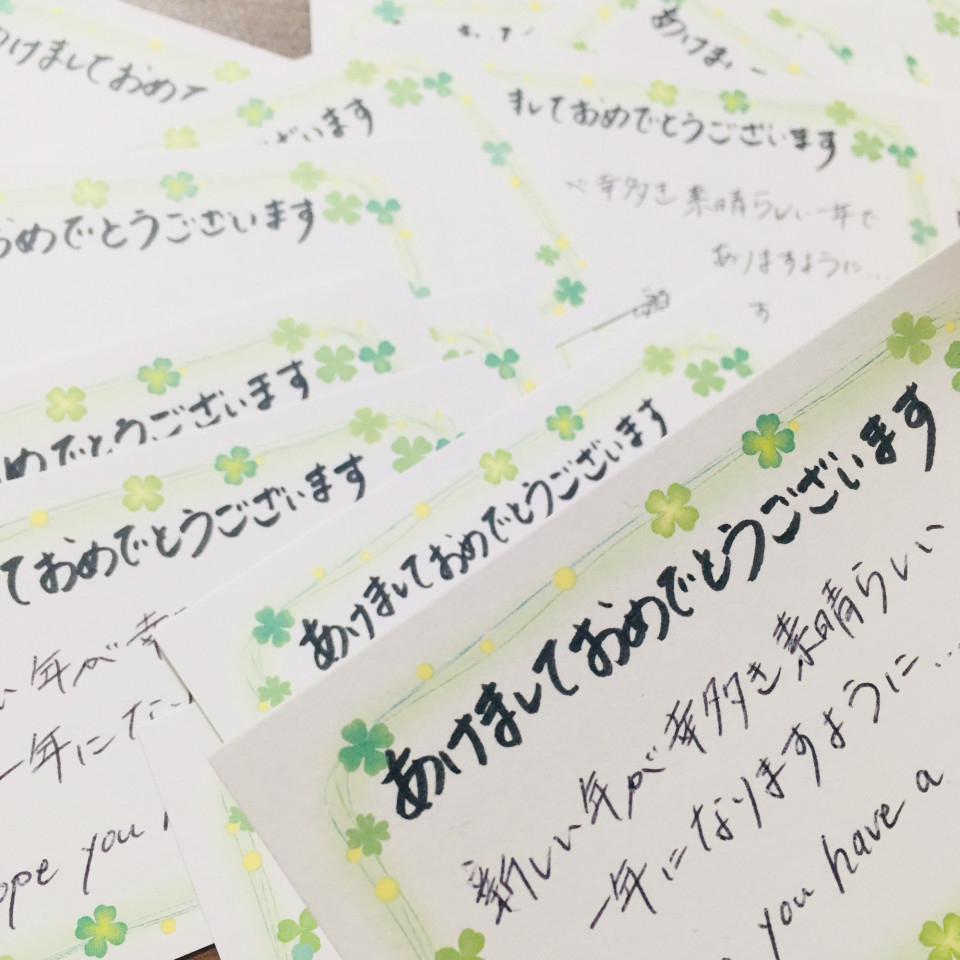 けましておめ
ざいます
あけま
ましておめでとうございます
幸多き素晴らしい一年で
ありますように...
おめでとうございます
めでとうございます
ておめでとうございます
い年が幸
一年にな
ope you
あけましておめでとうございます
あけましておめでとうございます
新しい年が幸多き素晴らしい
一年になりますように...
you have a